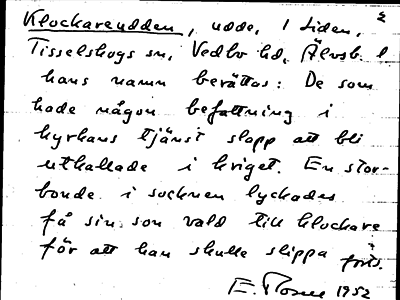 2
Klockareudden, udde, i Liden,
Tisselskogs sn, Vedbo hd, Älvsb. l
hans namn berättas: De som
hade någon befattning i
kyrkans tjänst slapp att bli
utkallade i kriget. En stor-
bonde i socknen lyckades
få sin son vald till klockare
för att han skulle slippa forts.
E. 1952